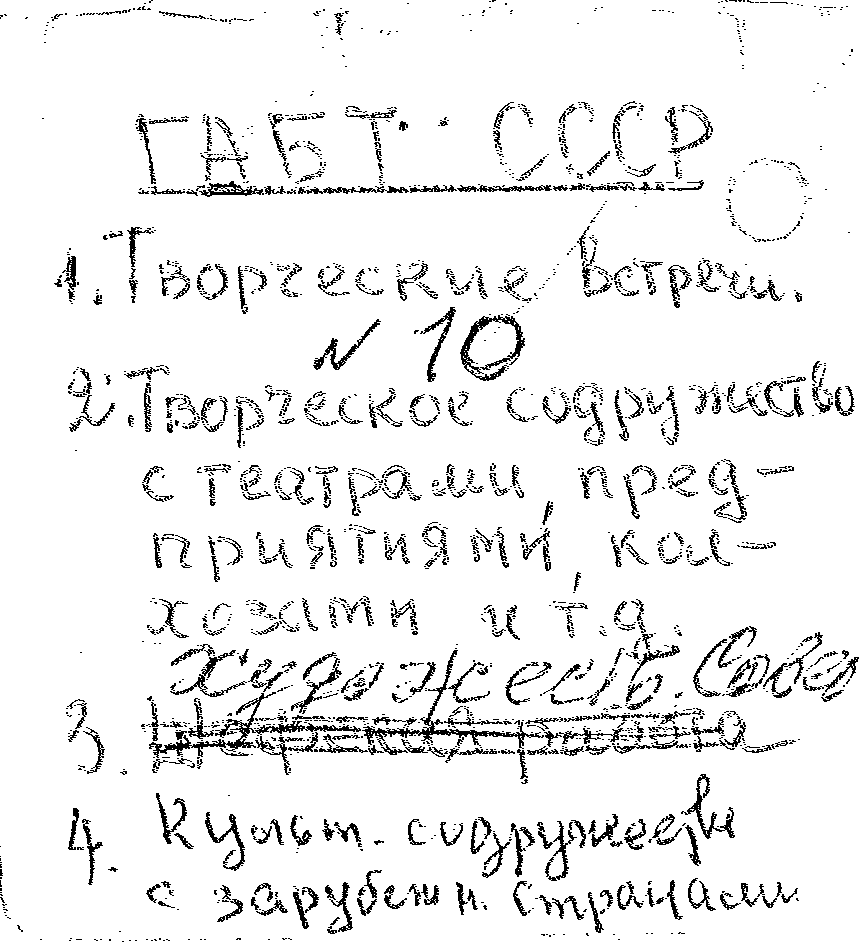 ГАБТ СССР
1. Творческие встречи.
N 10
2. Творческое содружество
с театрами, пред-
приятиями, кол-
хозами и т.д.
художеств. Совет
3. Шефская работа
4. Культ. содружеств
с зарубежн. странами